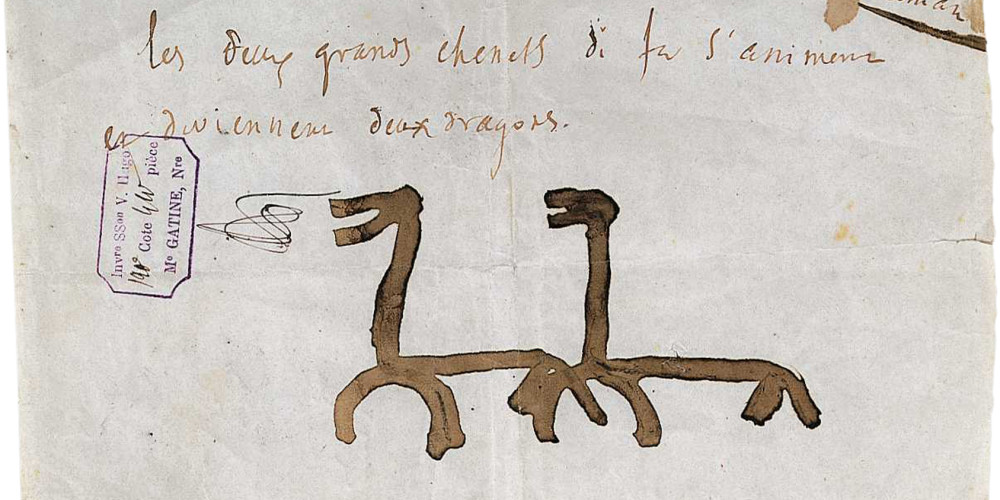 les deux grands chenets de fer s'animent
et deviennent deux dragons.
Invre SSon V. Hugo
Cote pièce
Me GATINE, Nre